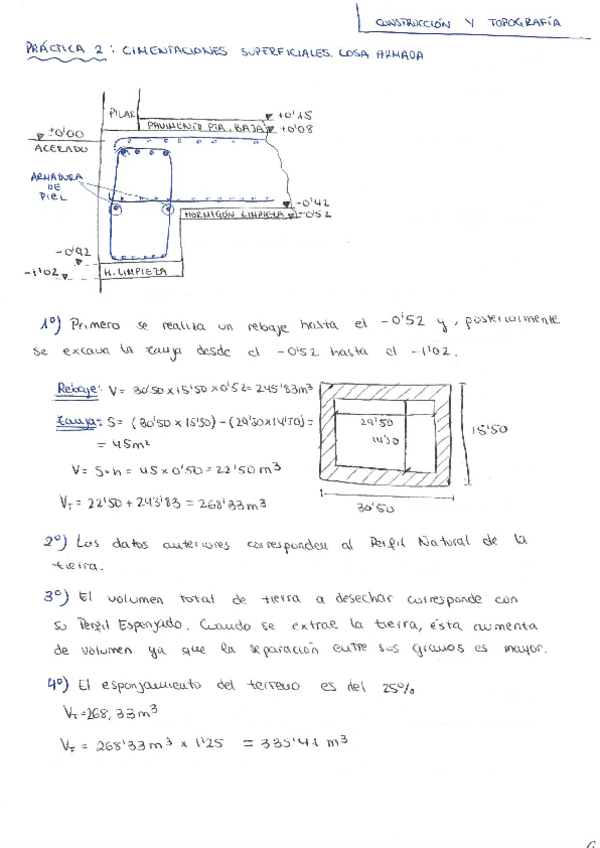 CONSTRUCCIÓN Y TOPOGRAFÍA
PRÁCTICA 2: CIMENTACIONES SUPERFICIALES. LOSA ARMADA
PILAR
+0'15
PAVIMENTO PTA. BAJA
+0'08
±0'00
ACERADO
ARMADURA
DE
PIEL
-0'42
HORMIGÓN LIMPIEZA
-0'52
-0'92
-1'02
H. LIMPIEZA
1º) Primero se realiza un rebaje hasta el -0'52 y, posteriormente
se excava la zanja desde el -0'52 hasta el -1'02.
Rebaje: V= 30'50 x 15'50 x 0'52 = 245'83 m³
Zanja: S= (30'50 x 15'50) - (29'50 x 14'50) =
= 45 m²
V= S·h = 45 x 0'50 = 22'50 m³
V_T = 22'50 + 245'83 = 268'33 m³
29'50
14'50
15'50
30'50
2º) Los datos anteriores corresponden al Perfil Natural de la
tierra.
3º) El volumen total de tierra a desechar corresponde con
su Perfil Esponjado. Cuando se extrae la tierra, ésta aumenta
de volumen ya que la separación entre sus granos es mayor.
4º) El esponjamiento del terreno es del 25%
V_T = 268,33 m³
V_T = 268'33 m³ x 1'25 = 335'41 m³